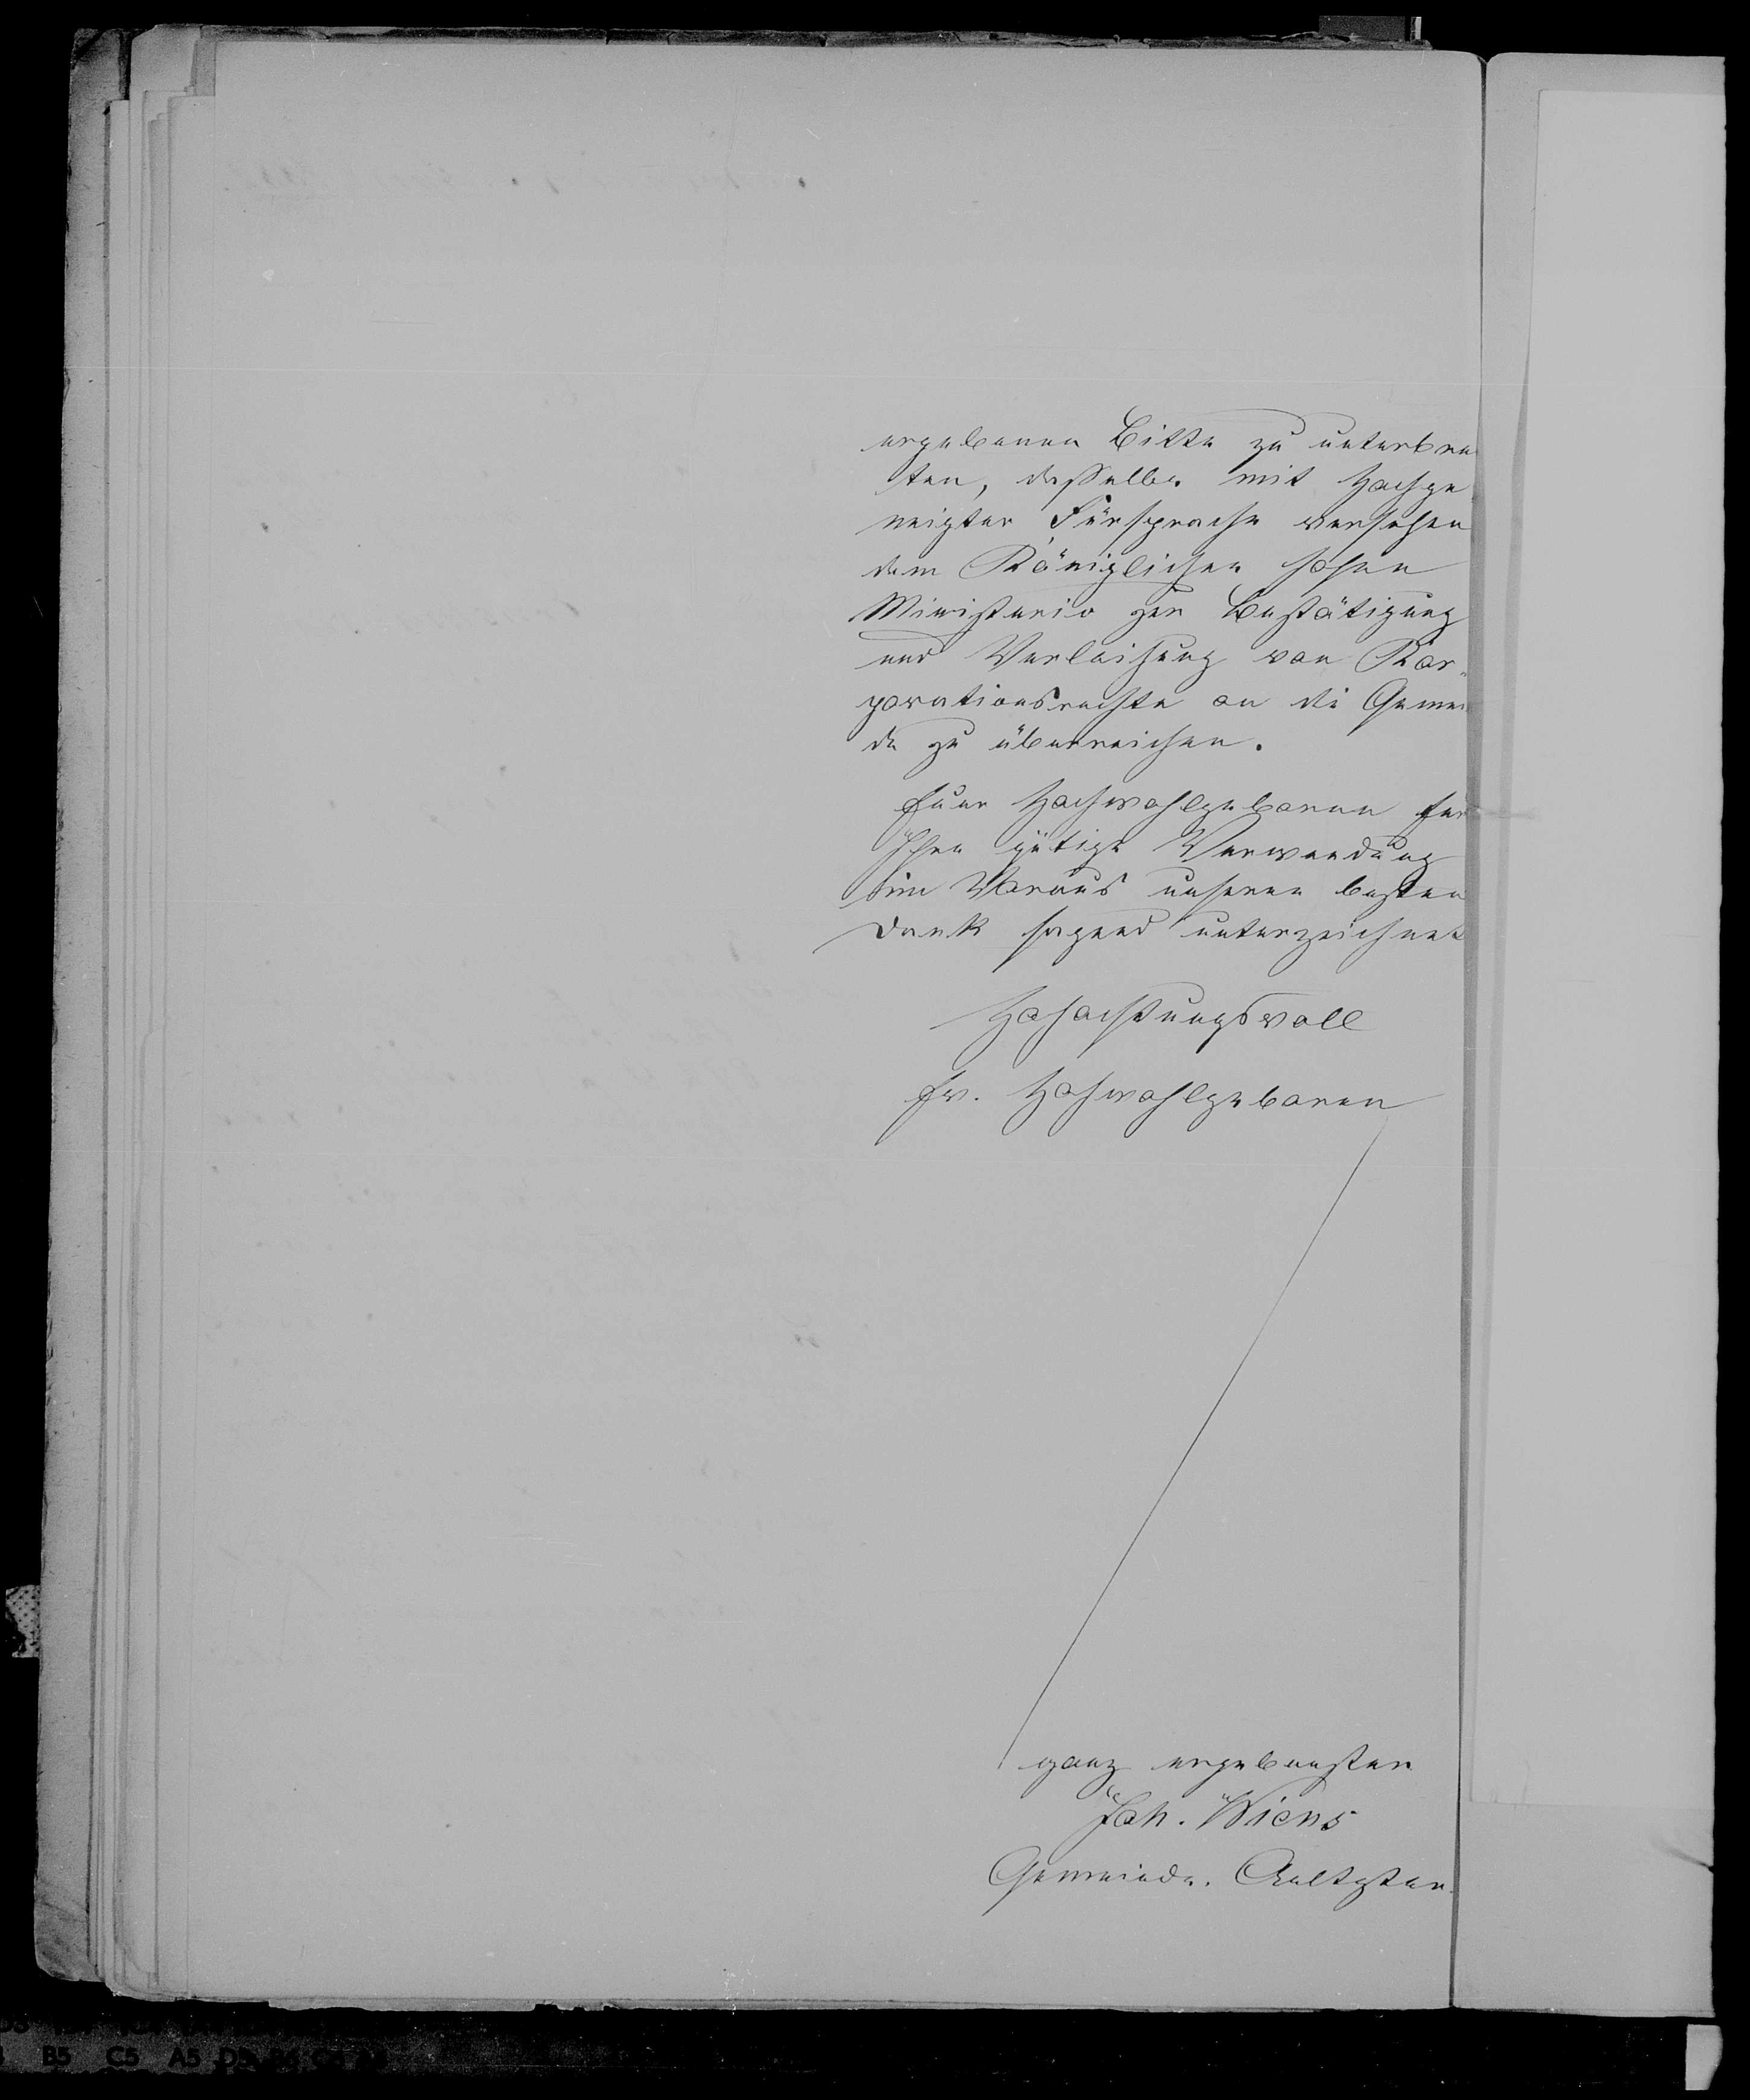 ergebenen Bitte zu unterbrei
ten, dasselbe mit Hochge
neigter Fürsprache versehen
dem Königlichen hohen
Ministerio zur Bestätigung
und Verleihung von Kor„
porationsrechte an die Gemein
de zu überreichen.
Euer Hochwohlgeboren für
Ihre gütige Verwendung
im Voraus unseren besten
Dank sagend unterzeichnet
Hohachtungsvoll
Ew. Hohwohlgeboren
ganz ergebenster
Joh. Wiens
Gemeinde. Aeltester.
B5 C5 A5